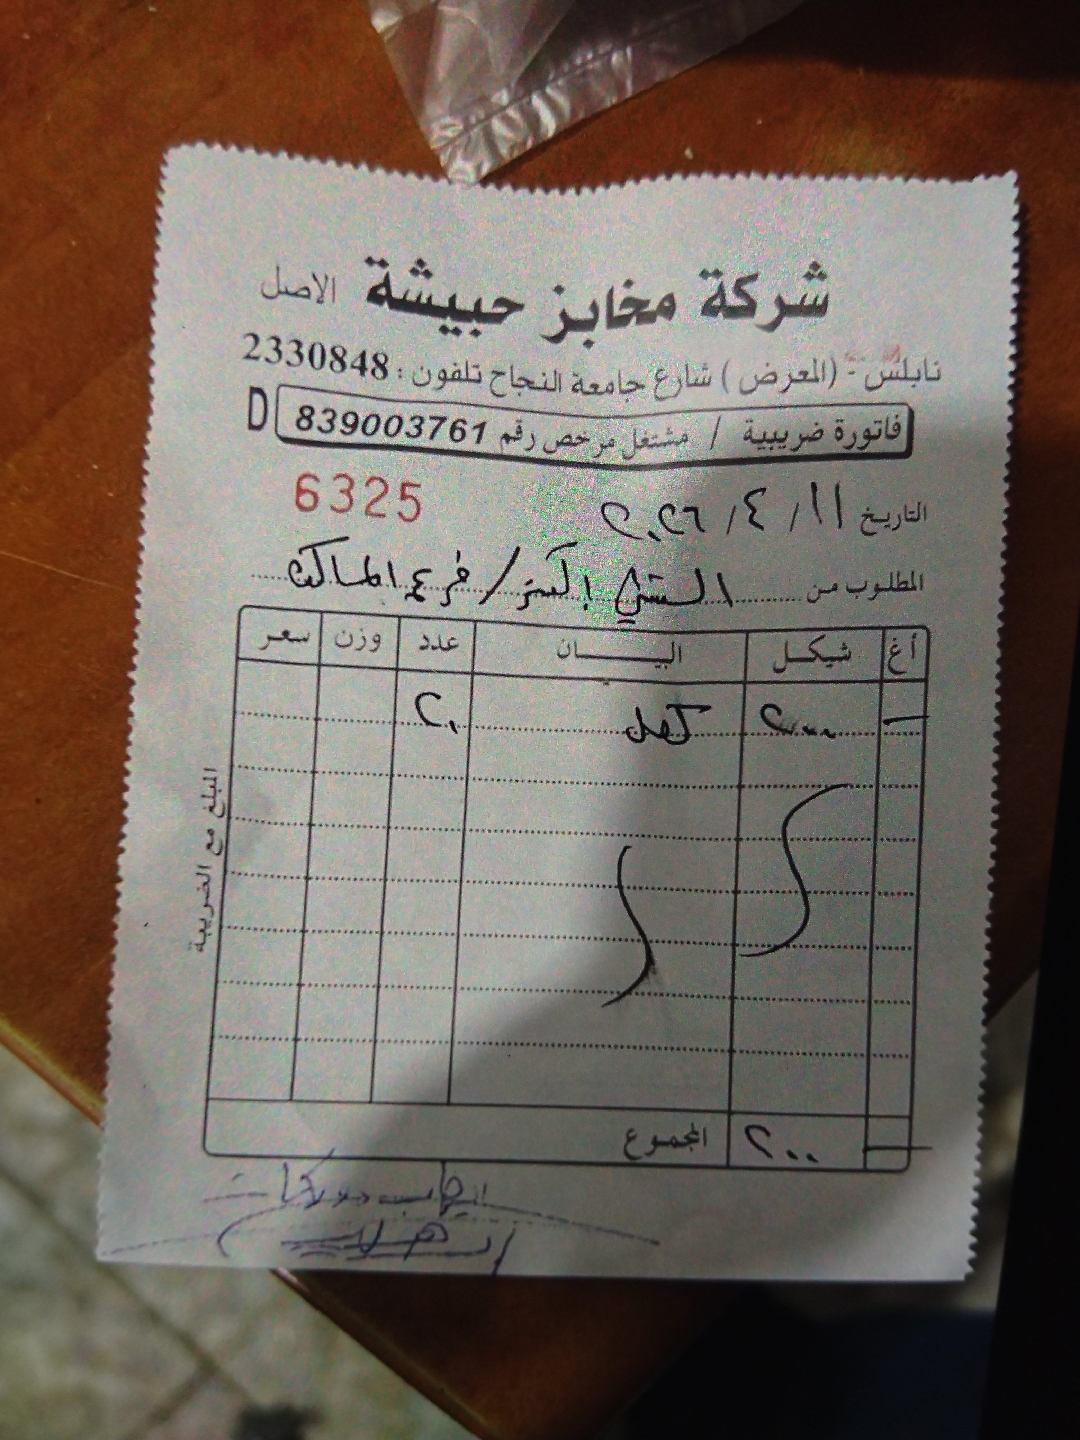 شركة مخابز حبيشة الاصل
نابلس - (المعرض) شارع جامعة النجاح تلفون : 2330848
فاتورة ضريبية / مشتغل مرخص رقم 839003761 D
التاريخ ١١ / ٤ / ٢٠٢٦ 6325
المطلوب من / فرع
أغ شيكل البيان عدد وزن سعر
— ٢٠٠٠ ٢٠
المبلغ مع الضريبة
— ٢٠٠ المجموع